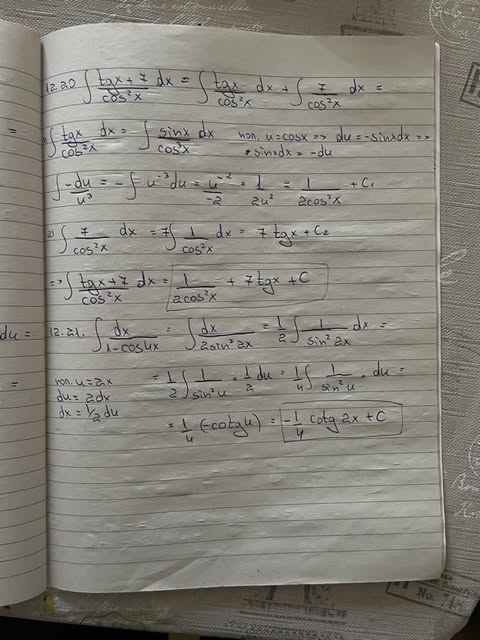 du =
=
=
12.20 ∫ (tgx + 7)/cos²x dx = ∫ tgx/cos²x dx + ∫ 7/cos²x dx =
1) ∫ tgx/cos²x dx = ∫ sinx/cos³x dx пол. u = cosx => du = -sinxdx =>
* sinxdx = -du
∫ -du/u³ = - ∫ u⁻³du = u⁻²/-2 = 1/2u² = 1/2cos²x + C₁
2) ∫ 7/cos²x dx = 7∫ 1/cos²x dx = 7 tgx + C₂
=> ∫ (tgx + 7)/cos²x dx = 1/2cos²x + 7tgx + C
12.21. ∫ dx/1-cos4x = ∫ dx/2sin²2x = 1/2 ∫ 1/sin²2x dx =
пол. u = 2x
du = 2dx
dx = 1/2 du
= 1/2 ∫ 1/sin²u · 1/2 du = 1/4 ∫ 1/sin²u · du =
= 1/4 (-cotgu) = -1/4 cotg2x + C